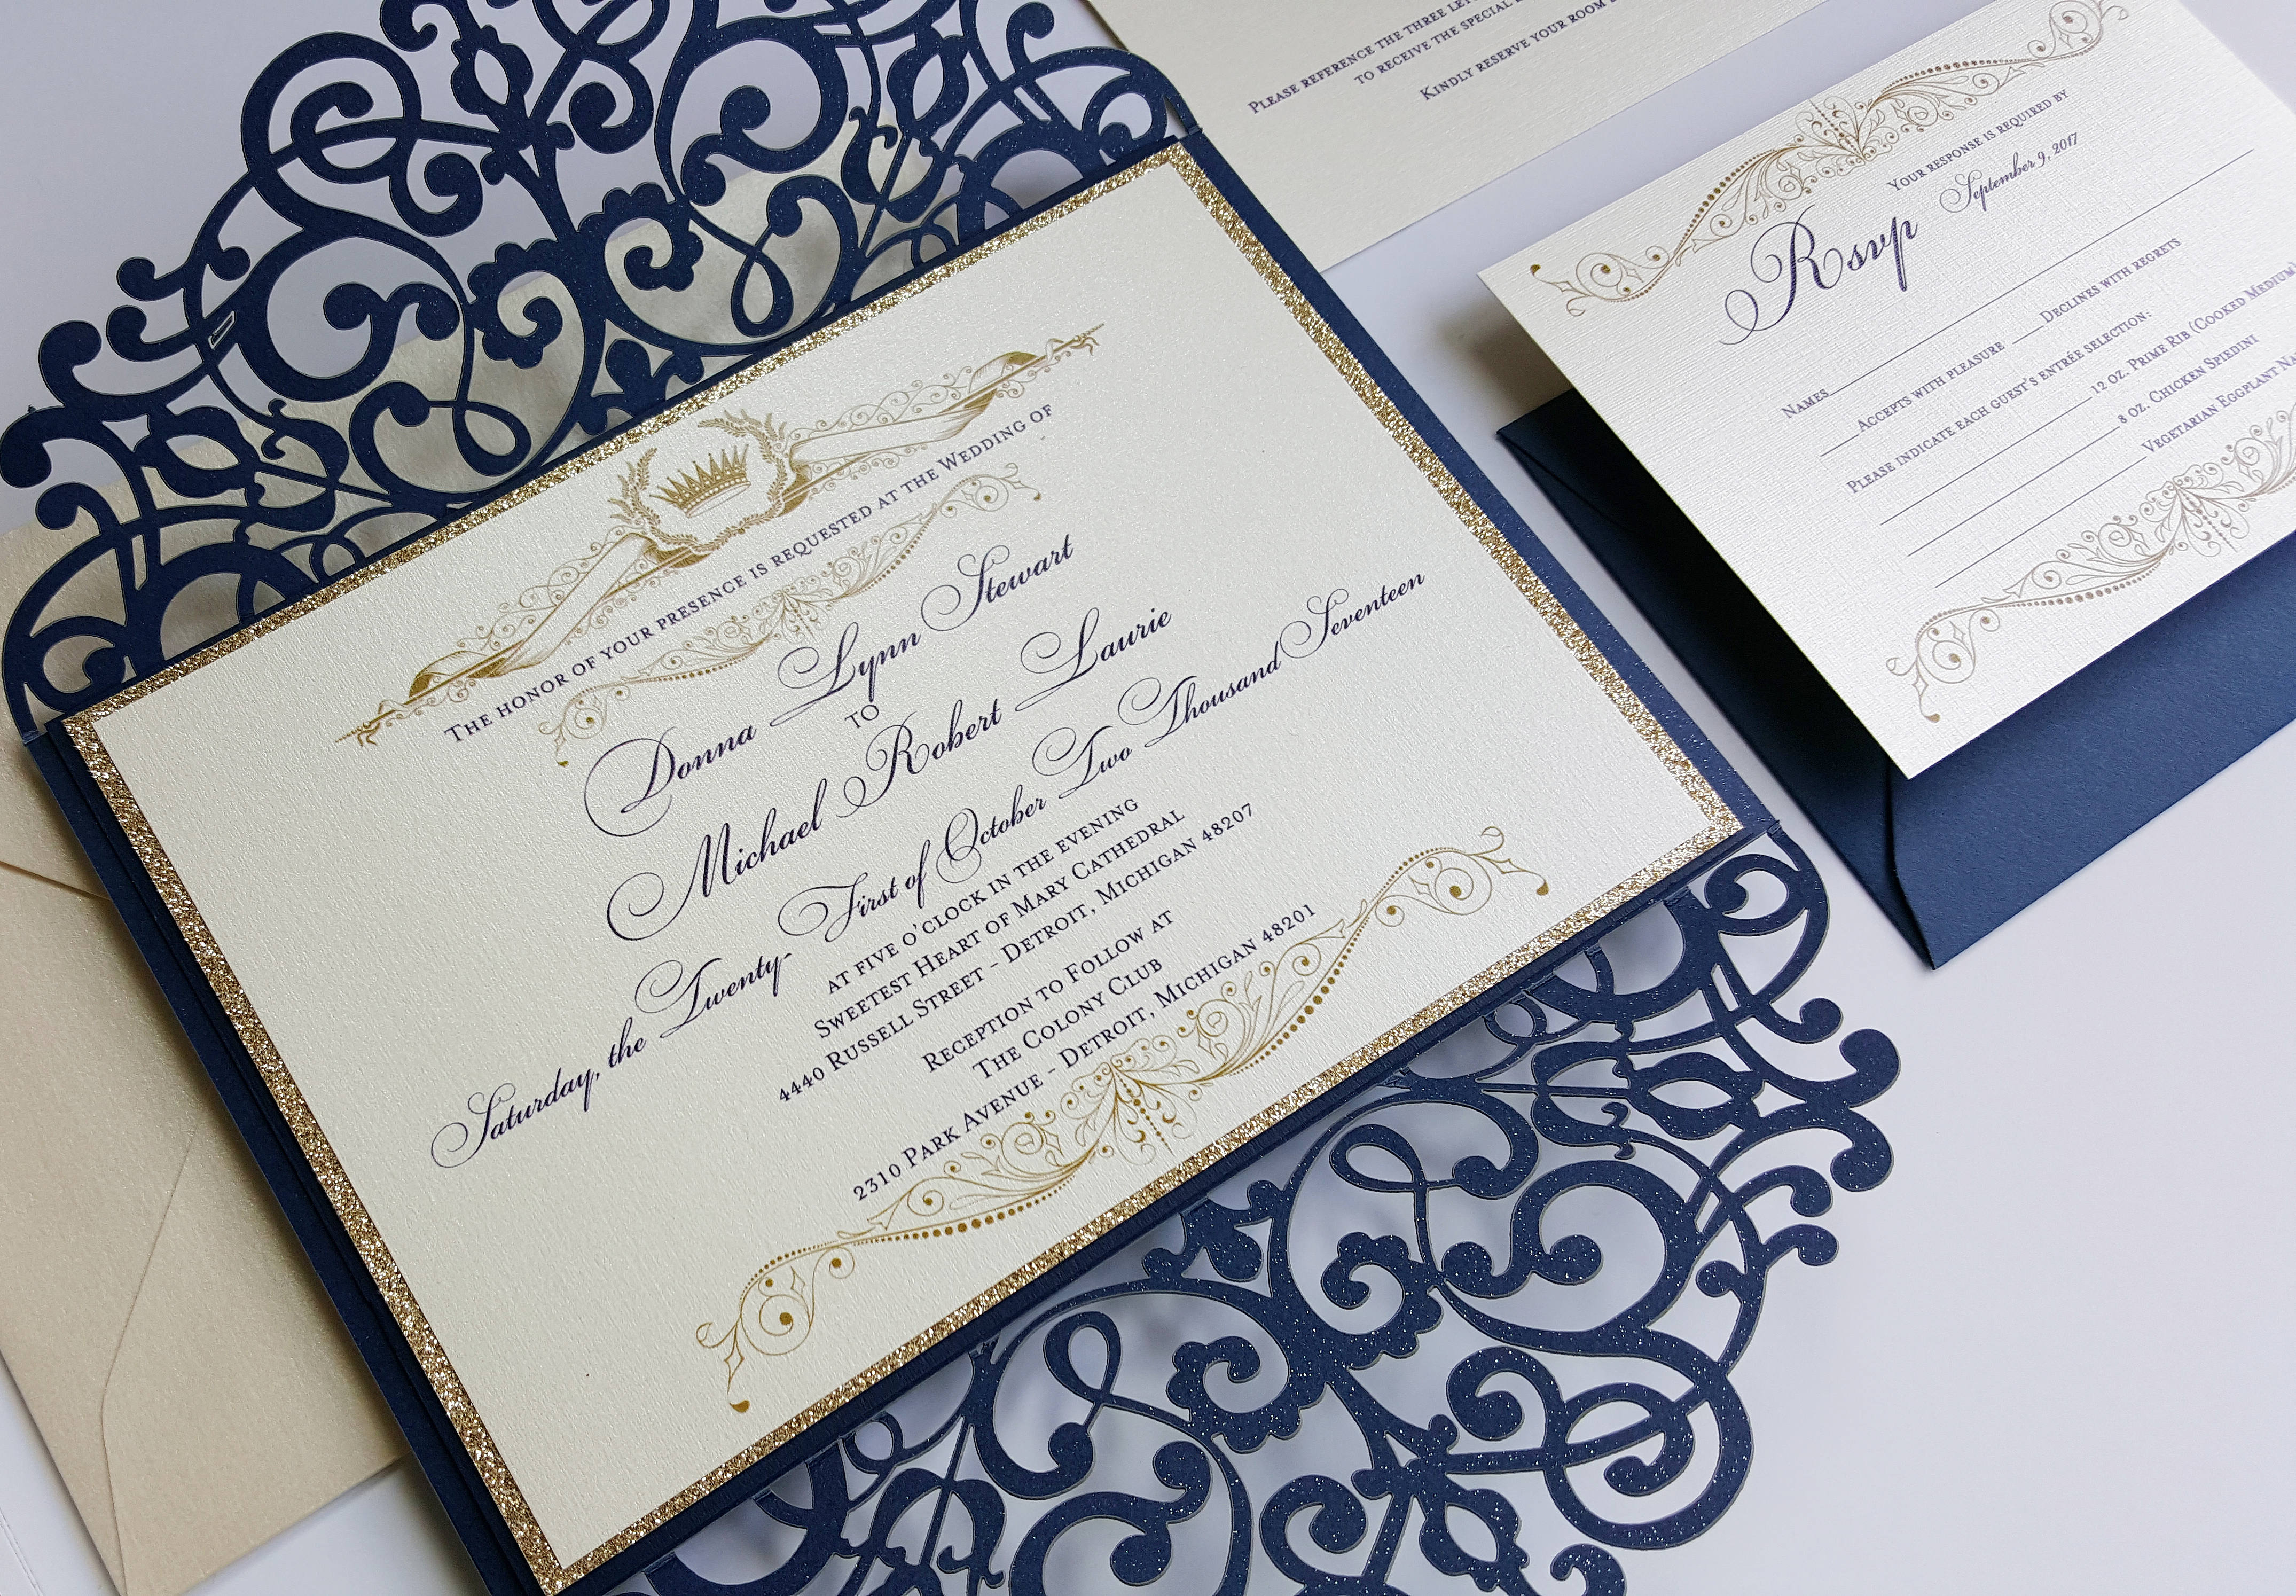 The honor of your presence is requested at the Wedding of
Donna Lynn Stewart
to
Michael Robert Laurie
Saturday, the Twenty-First of October Two Thousand Seventeen
at five o'clock in the evening
Sweetest Heart of Mary Cathedral
4440 Russell Street - Detroit, Michigan 48207
Reception to Follow at
The Colony Club
2310 Park Avenue - Detroit, Michigan 48201
Please reference the three
to receive the special
Kindly reserve your room
Your response is required by
September 9, 2017
Rsvp
Names
Accepts with pleasure Declines with regrets
Please indicate each guest's entrée selection:
12 oz. Prime Rib (Cooked Medium)
8 oz. Chicken Spiedini
Vegetarian Eggplant